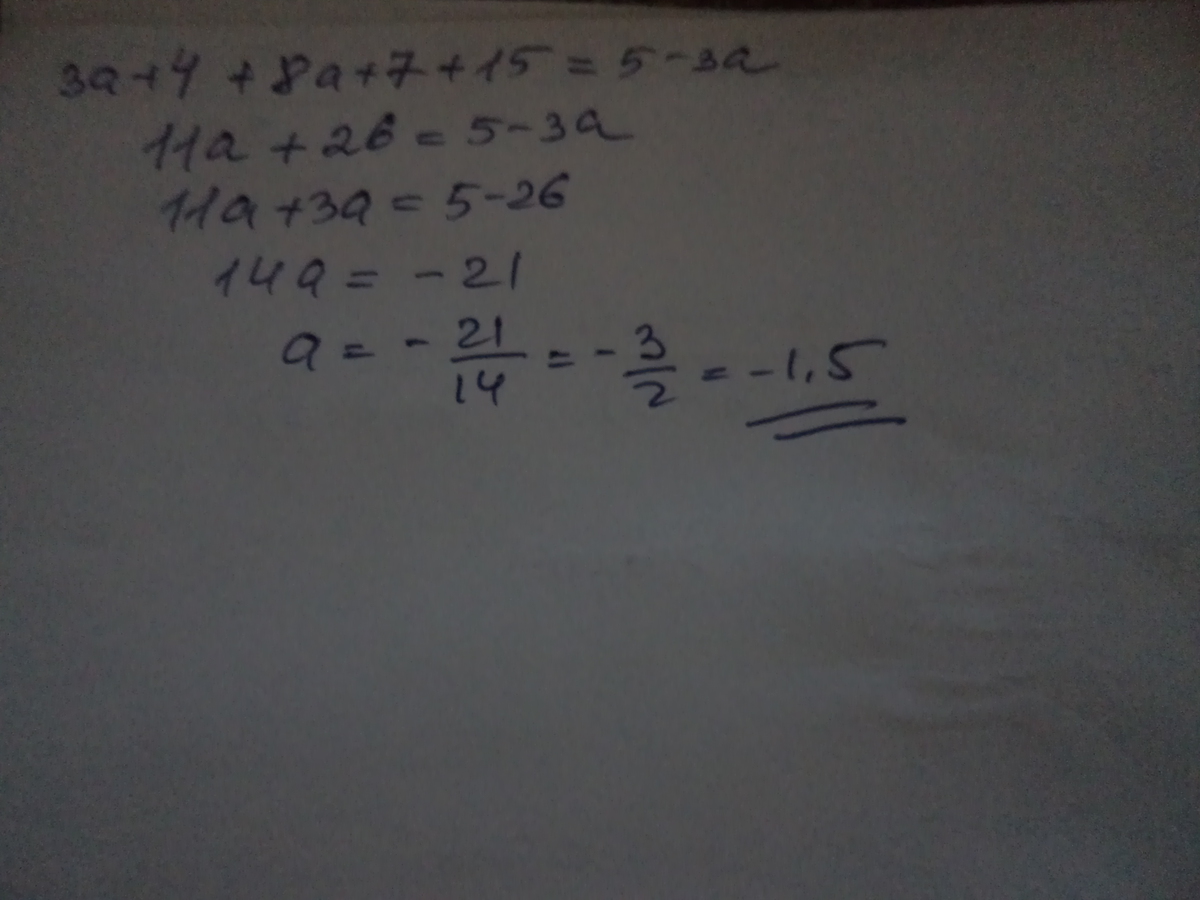 3a+4 + 8a+7+15 = 5-3a
11a + 26 = 5-3a
11a+3a = 5-26
14a = -21
a = - 21/14 = - 3/2 = -1,5